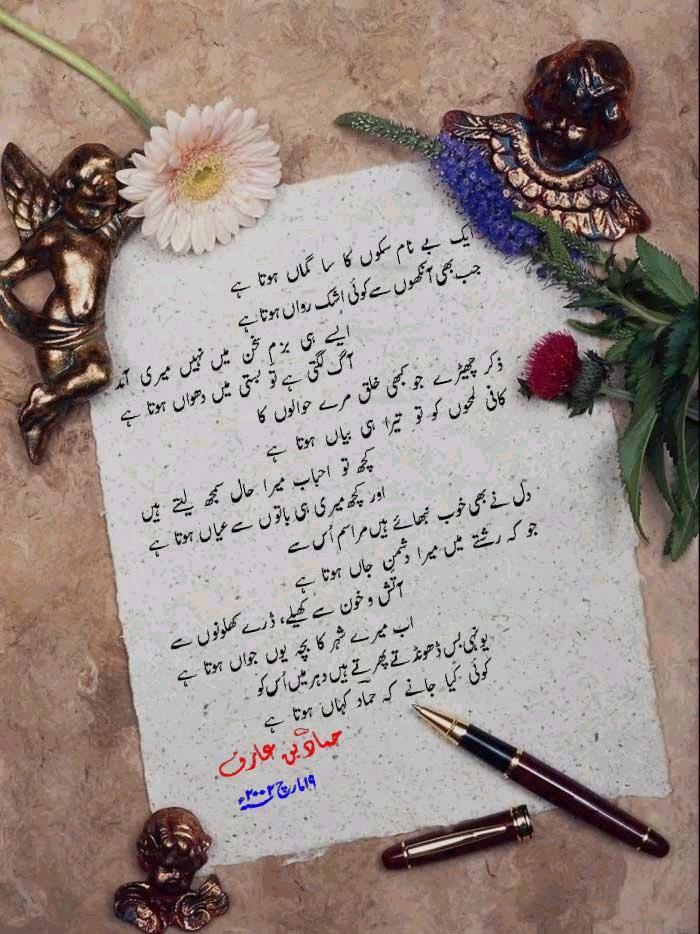 ایک بے نام سکوں کا سا گماں ہوتا ہے
جب بھی آنکھوں سے کوئی اشک رواں ہوتا ہے
ایسے ہی بزمِ سخن میں نہیں میری آمد
آگ لگتی ہے تو بستی میں دھواں ہوتا ہے
ذکر چھیڑے جو کبھی خلق مرے حوالوں کا
کافی لمحوں کو تو تیرا ہی بیاں ہوتا ہے
کچھ تو احباب میرا حال سمجھ لیتے ہیں
اور کچھ میری ہی باتوں سے عیاں ہوتا ہے
دل نے بھی خوب نبھائے ہیں مراسم اُس سے
جو کہ رشتے میں میرا دشمنِ جاں ہوتا ہے
آتش و خون سے کھیلے، ڈرے کھلونوں سے
اب میرے شہر کا بچہ یوں جواں ہوتا ہے
یونہی بس ڈھونڈتے پھرتے ہیں دہر میں اُس کو
کوئی کیا جانے کہ حماد کہاں ہوتا ہے
حماد بن عارف
۱۹ مارچ ۲۰۰۲ء